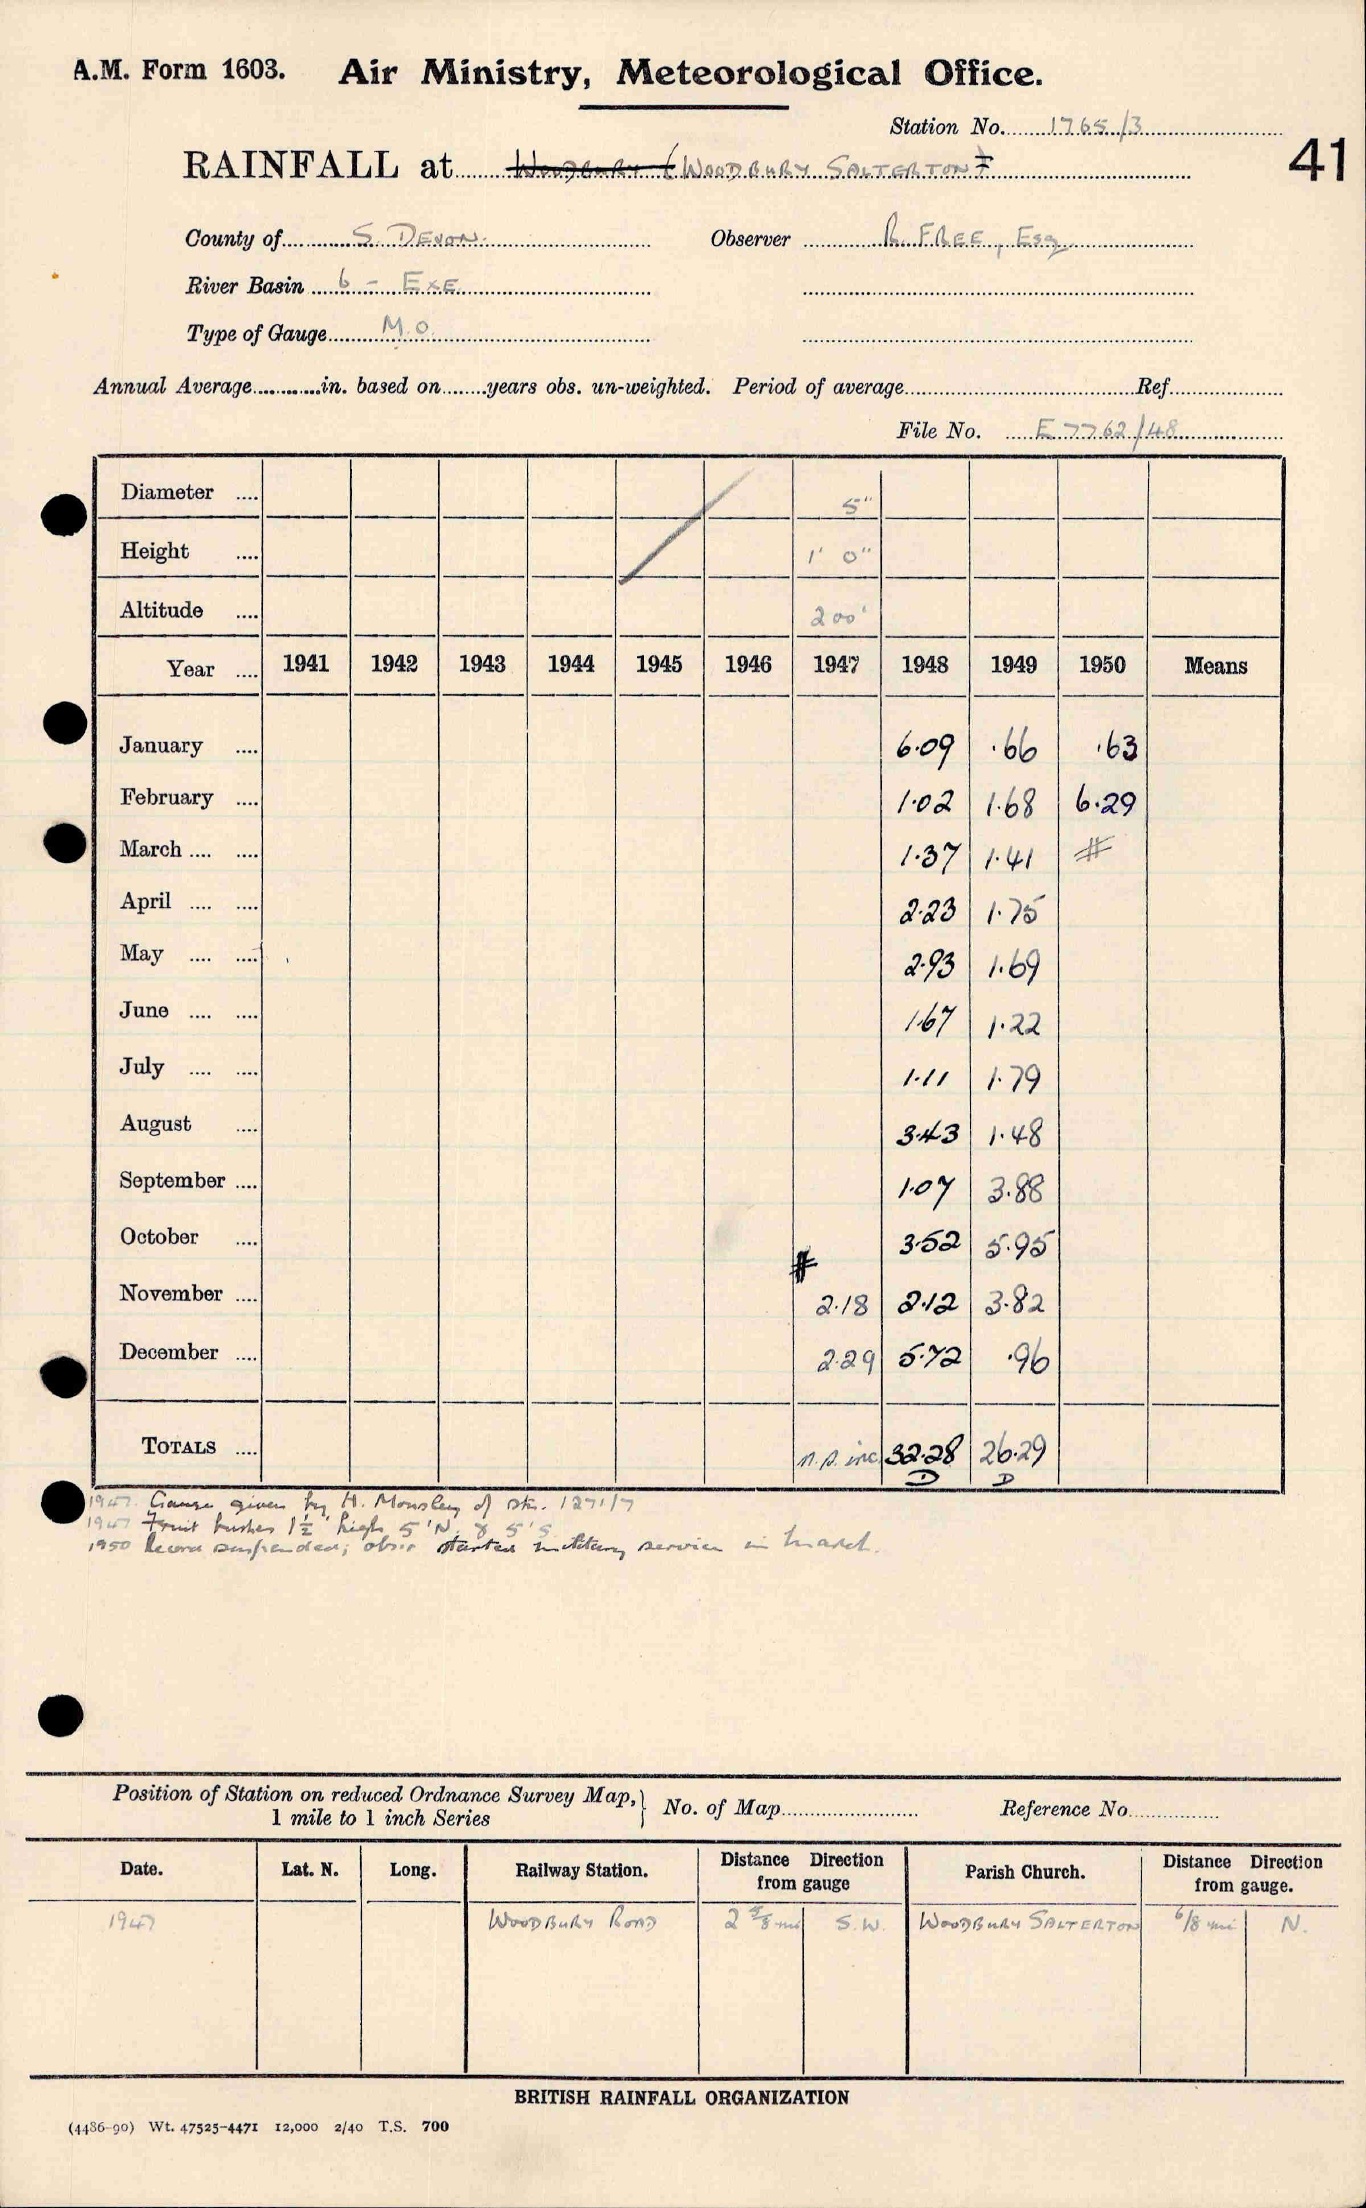 A.M. Form 1603. Air Ministry, Meteorological Office.
Station No. 1765/3
41
RAINFALL at Woodbury (Woodbury Salterton)
County of S. Devon. Observer R. Free, Esq
River Basin 6 - Exe
Type of Gauge M.O.
Annual Average............in. based on.......years obs. un-weighted. Period of average.......... Ref..........
File No. E7762/48
Diameter .... 5"
Height .... 1' 0"
Altitude .... 200'
Year .... 1941 1942 1943 1944 1945 1946 1947 1948 1949 1950 Means
January .... 6.09 .66 .63
February .... 1.02 1.68 6.29
March .... .... 1.37 1.41 #
April .... .... 2.23 1.75
May .... .... 2.93 1.69
June .... .... 1.67 1.22
July .... .... 1.11 1.79
August .... 3.43 1.48
September .... 1.07 3.88
October .... 3.52 5.95
#
November .... 2.18 2.12 3.82
December .... 2.29 5.72 .96
Totals .... n.p. inc. 32.28 26.29
D D
1947. Gauge given by H. Mousley of stn. 1271/7
1947 Fruit bushes 1½' high 5' N. & 5' S.
1950 Record suspended; obsr started military service in March.
Position of Station on reduced Ordnance Survey Map, } No. of Map.......... Reference No..........
1 mile to 1 inch Series
Date. Lat. N. Long. Railway Station. Distance Direction from gauge Parish Church. Distance Direction from gauge.
1947 Woodbury Road 2 5/8 mi S.W. Woodbury Salterton 6/8 mi N.
BRITISH RAINFALL ORGANIZATION
(4486-90) Wt. 47525-4471 12,000 2/40 T.S. 700